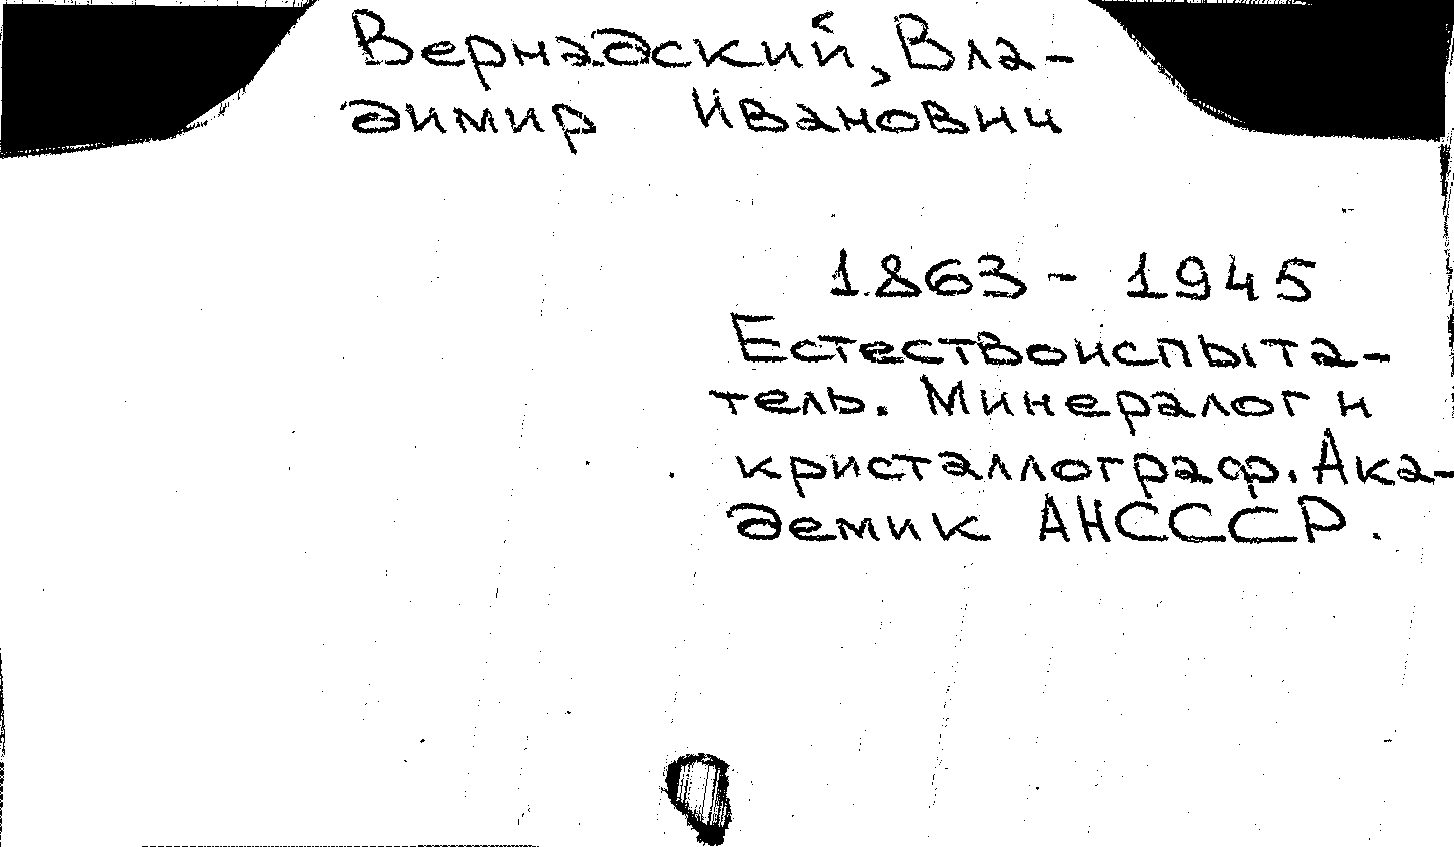 Вернадский, Вла-
димир Иванович
1863 - 1945
Естествоиспыта-
тель. Минералог и
кристаллограф. Ака-
демик АНСССР.